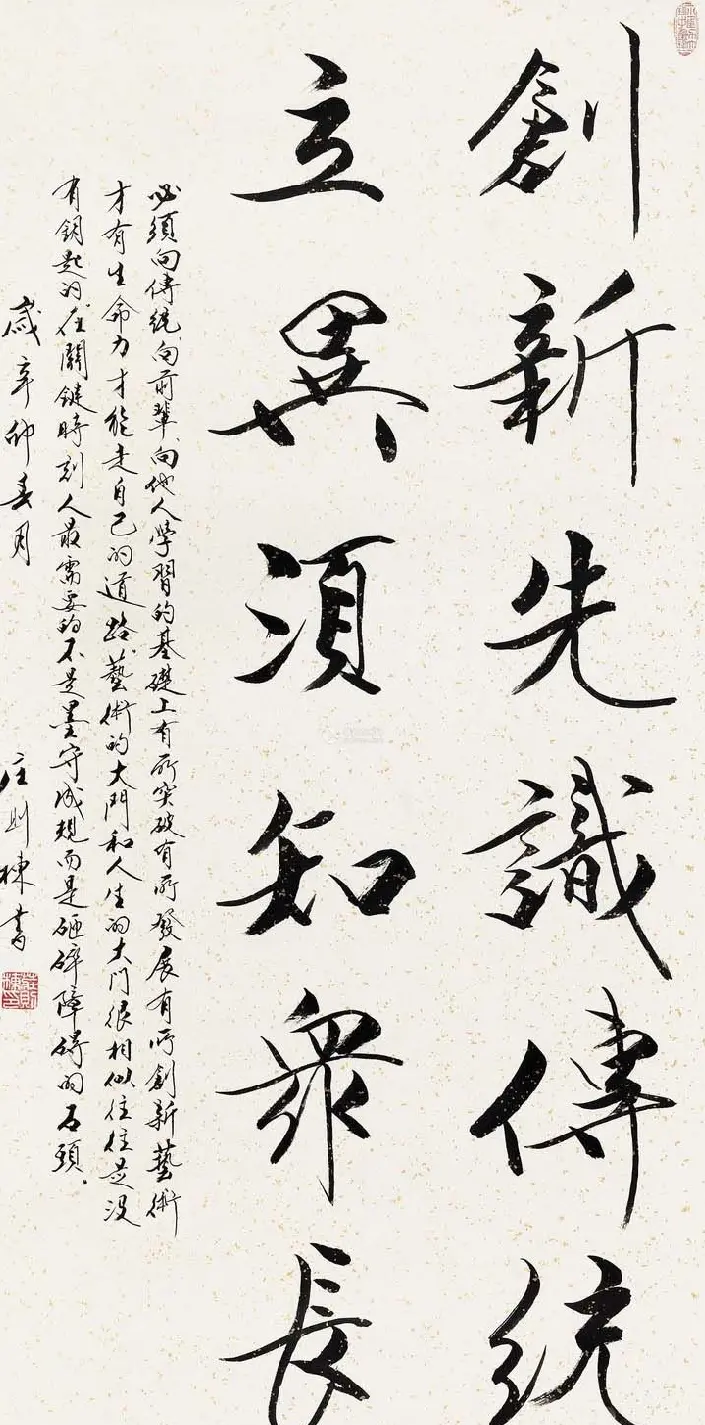 創新先識傳統
立異須知眾長
必須向傳統向前輩向他人學習的基礎上有所突破有所發展有所創新藝術
才有生命力才能走自己的道路藝術的大門和人生的大門很相似往往是没
有鑰匙的在關鍵時刻人最需要的不是墨守成規而是砸碎障碍的石頭
歲辛卯春月
庄則棟書